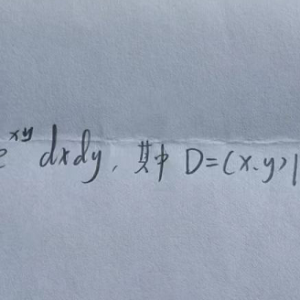 e^{xy} dxdy, 其中 D=(x.y)|